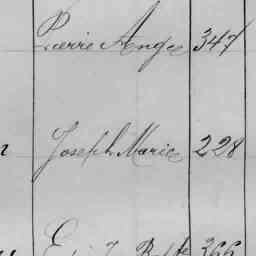 Pierre Ange 347
Joseph Marie 228
366